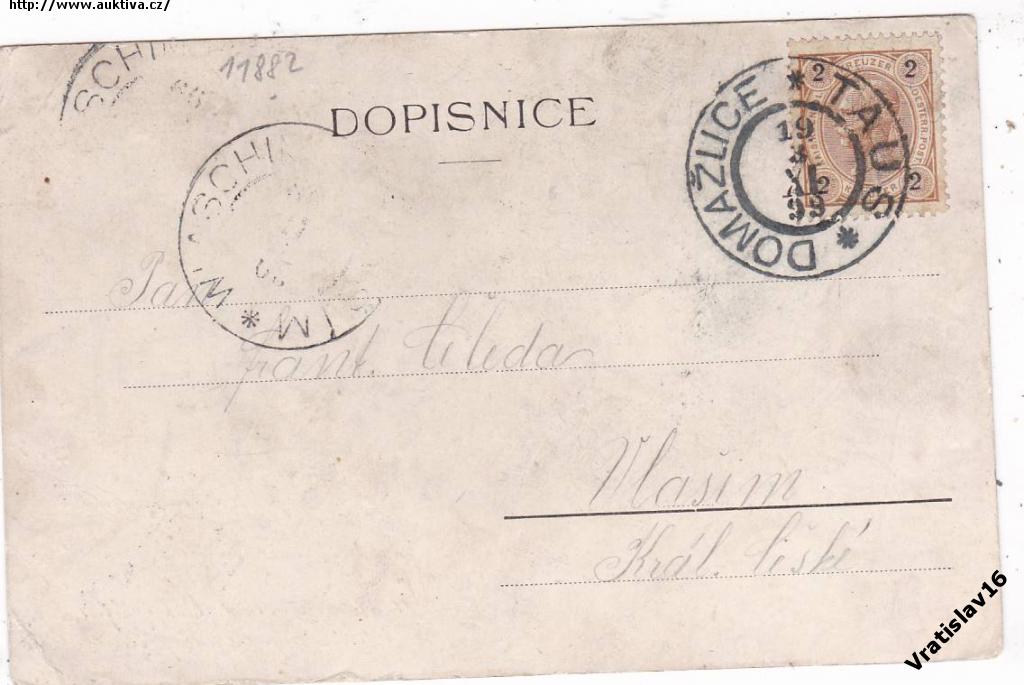 http://www.auktiva.cz/
SCHI
11882
DOPISNICE
TAUS * DOMAŽLICE *
19
XI
99
2 KREUZER 2
OESTERR.POST
2 2
SCHI
*
IM
Pan
Frant.
Vlašim
Král. České
Vratislav16